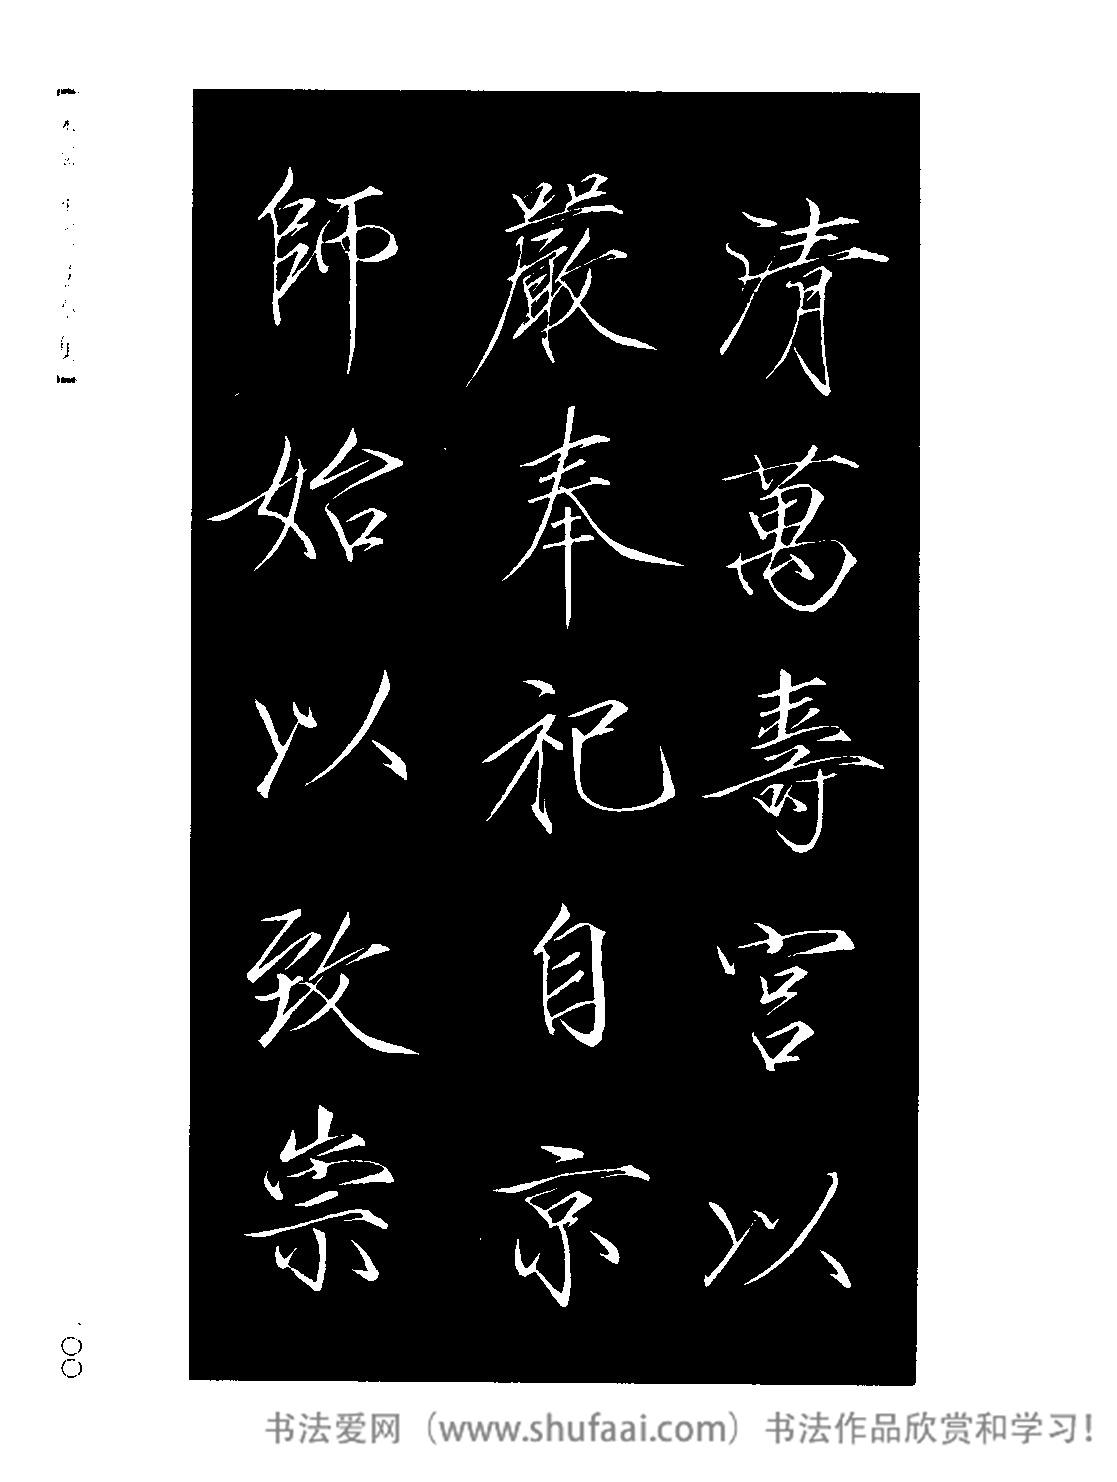 清萬壽宮以
嚴奉祀自京
師始以致崇
一〇〇
书法爱网（www.shufaai.com）书法作品欣赏和学习！